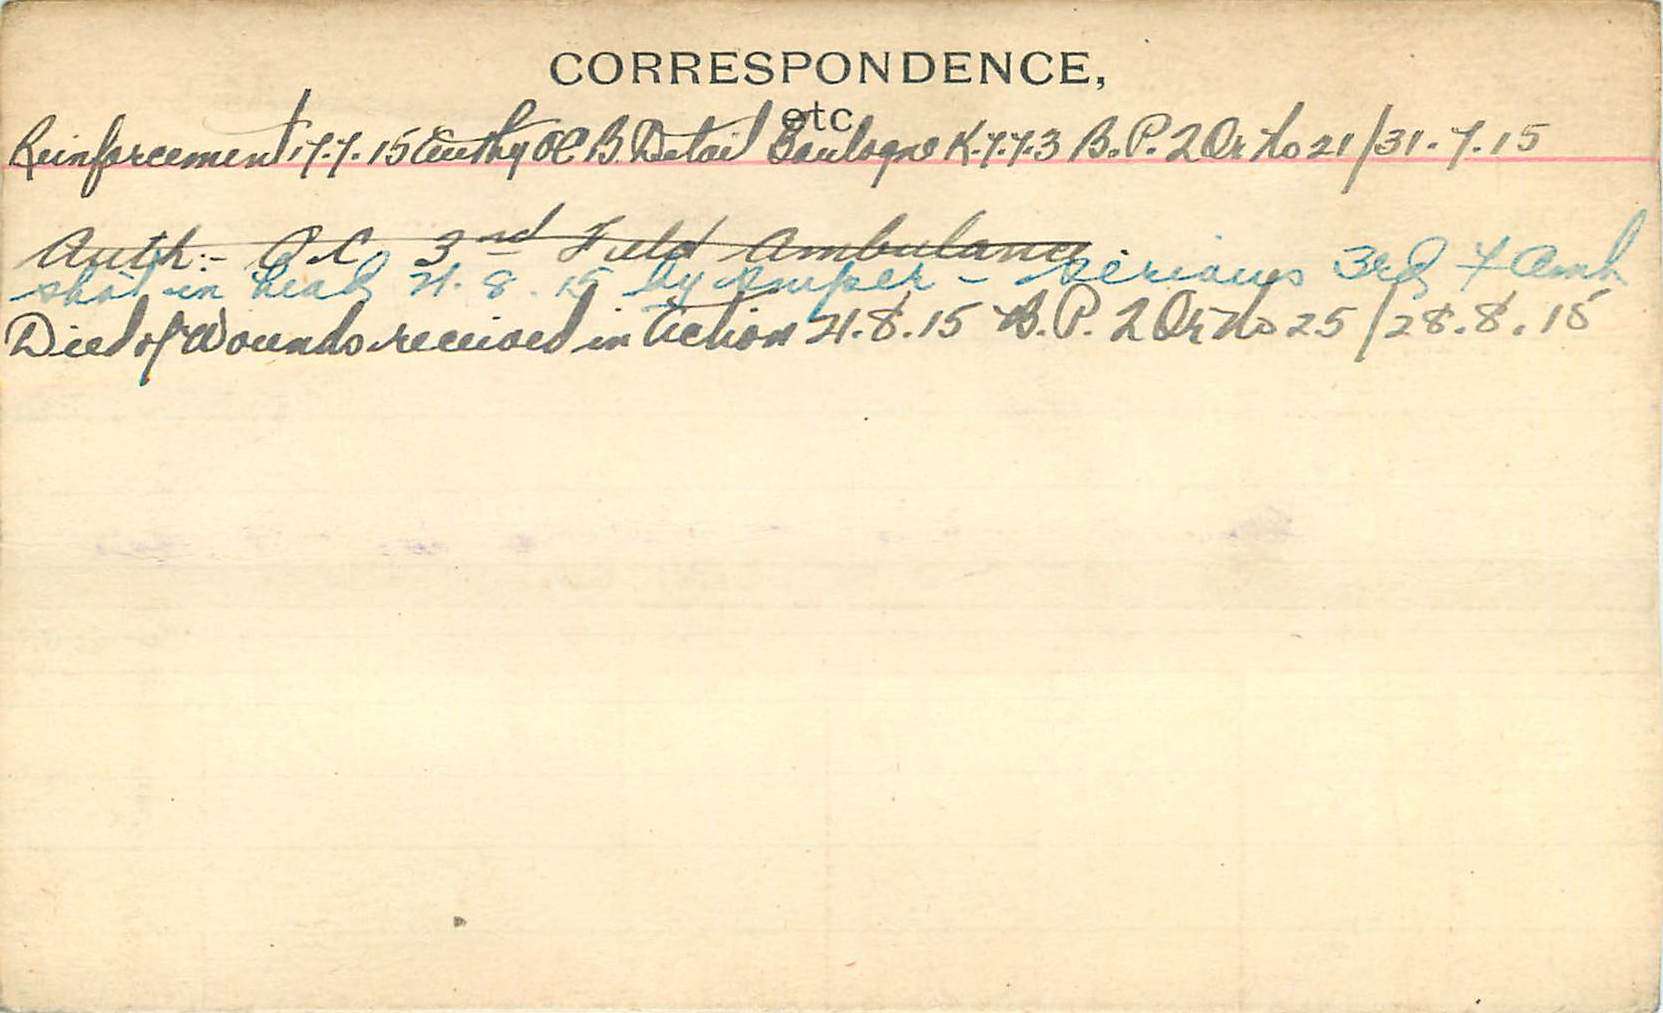 CORRESPONDENCE,
etc
Reinforcement 17.7.15 Authy OC B. Detail Boulogne K.7.7.3 B.P. 2 Or No 21/31.7.15
Auth:- O.C 3rd Field Ambulance.
shot in head 21.8.15 by sniper - serious 3rd F Amb
Died of Wounds received in Action 21.8.15 B.P. 2 Or No 25/28.8.15